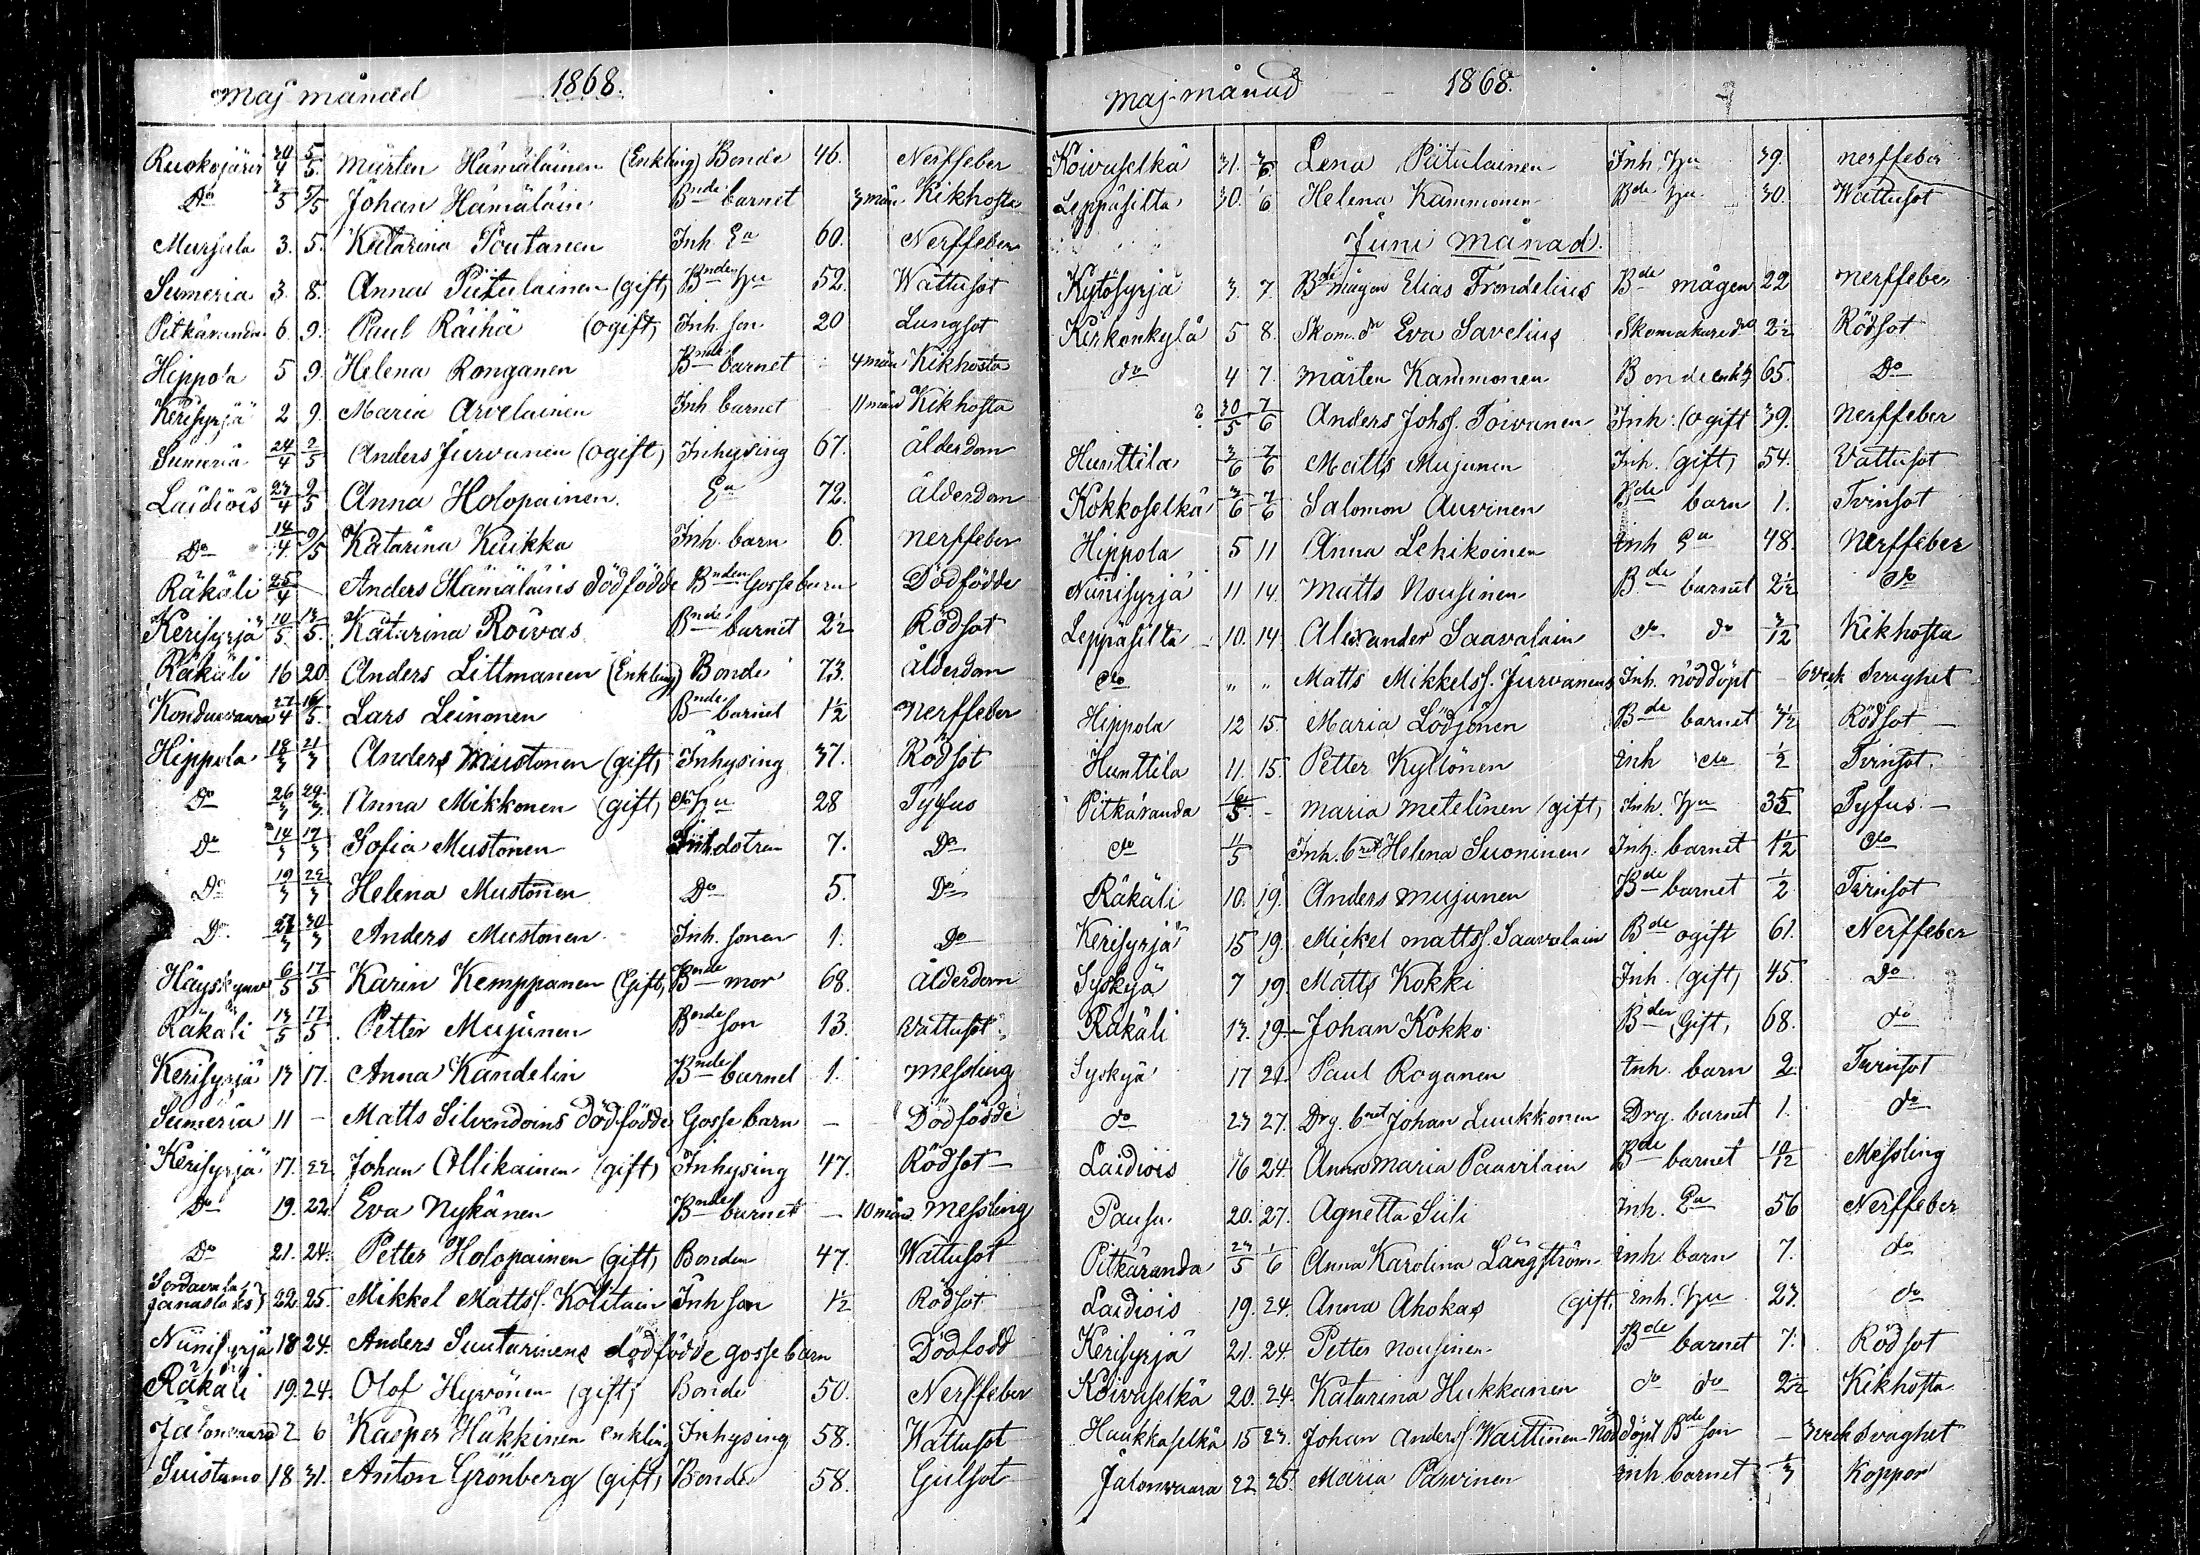 Maj månad 1868.
Ruskojärvi 30/4 5/5. Mårten Hämäläinen (Enkling) Bonde 46. Nerffeber
Do 2/5 5/5 Johan Hämäläin Bnde barnet 3 mån Kikhosta
Mursula 3. 5. Katarina Poutanen Inh. Ea 60. Nerffeber
Sumeria 3. 8. Anna Piitulainen (gift) Bnden hu 52. Wattusot
Pitkäranda 6. 9. Paul Räihä (ogift) Inh. son 20 Lungsot
Hippola 5 9. Helena Ronganen Bnde barnet 4 mån Kikhosta
Kerisyrjä 2 9. Maria Arvelainen Inh barnet 11 mån Kikhosta
Sumeria 24/4 2/5 Anders Jurvanen (ogift) Inhysing 67. Ålderdom
Laidiois 23/4 9/5 Anna Holopainen. Ea 72. Ålderdom
Do 14/4. 9/5 Katarina Kuikka Inh. barn 6 Nerffeber
Räkäli 25/4 Anders Hämäläins dödfödde Bnden Gossebarn Dödfödde
Kerisyrjä 10/5 13/5. Katarina Roivas Bnde barnet 2½ Rödsot
Räkäli 16 20. Anders Littmanen (Enkling) Bonde 73. Ålderdom
Konduvaara 27/4 16/5. Lars Leinonen Bnde barnet 1½ Nerffeber
Hippola 18/3 21/3 Anders Mustonen (gift) Inhysing 37. Rödsot
Do 26/3 29/3. Anna Mikkonen (gift) do hu 28 Tyfus
Do 14/3 17/3 Sofia Mustonen Inh dotren 7. Do
Do 19/3 22/3 Helena Mustonen Do 5. Do
Do 27/3 30/3 Anders Mustonen Inh. sonen 1. Do
6/5 17/5 Karin Kemppanen (Gift) Bnde mor 68. Ålderdom
Räkäli 13/5 17/5. Petter Mujunen Bnde son 13. Vattusot
Kerisyrjä 13 17. Anna Kandelin Bnde barnet 1. Messling
Sumeria 11 – Matts Silvendoins Dödfödde Gosse barn – Dödfödde
Kerisyrjä 17. 22 Johan Ollikainen (gift) Inhysing 47. Rödsot –
Do 19. 22. Eva Nykänen Bnde barnet – 10 mån Messling
Do 21. 24. Petter Holopainen (gift) Bonden 47. Wattusot
Sordavala, 22. 25. Mikkel Mattss. Kolitain Inh son 1½ Rödsot
Niinisyrjä 18 24. Anders Suutarinens dödfödde gossebarn Dödfödd
Räkäli 19. 24. Olof Hyvönen (gift) Bonde 50. Nerffeber
Jalonvaara 2 6 Kasper Häkkinen enkling Inhysing 58. Wattusot
Suistamo 18 31. Anton Grönberg (gift) Bonde 58. Gulsot
Maj-månad 1868.
Koivuselkä 31. 3/6 Lena Piitulainen Inh. hu 39. Nerffeber
Leppäsilta 30. 1/6 Helena Kammonen Bde hu 30. Wattusot
Juni månad.
Kytösyrjä 3. 7. Bde mågen Elias Frondelius Bde mågen 22 Nerffeber
Kirkonkylä 5 8. Skom. dr Eva Savelius Skomakare dr 2½ Rödsot
do 4 7. Mårten Kammonen Bonde enkl. 65. Do
? 30/5 7/6 Anders Johss. Toivanen Inh. (ogift 39. Nerffeber
Hunttila 3/6 7/6 Matts Mujunen Inh. (gift) 54. Vattusot
Kokkoselkä 3/6 7/6 Salomon Auvinen Bde barn 1. Tvinsot
Hippola 5 11 Anna Lehikoinen Inh Ea 48. Nerffeber
Niinisyrjä 11 14. Matts Nousinen Bde barnet 2½ do
Leppäsilta 10. 14. Alexander Saavalain do do 3/12 Kikhosta
do " " Matts Mikkelss. Jurvanens Inh. nöddöpt – 6 veck Svaghet
Hippola 12 15. Maria Lödjönen Bde barnet 3½ Rödsot –
Hunttila 11. 15. Petter Kyllönen Inh do ½ Tvinsot.
Pitkäranda 16/5. – Maria Metelinen (gift) Inh. hu 35 Tyfus. –
do 11/5 Inh. bnet Helena Suoninen Inh. barnet 1½ do
Räkäli 10. 19. Anders Mujunen Bde barnet ½ Tvinsot
Kerisyrjä 15 19. Mickel Mattss. Saavalain Bde ogift 61. Nerffeber
Syskyä 7 19 Matts Kokki Inh. (gift) 45. Do
Räkäli 13. 19. – Johan Kokko. Bden Gift, 68. do
Syskyä 17 21. Paul Roganen Inh. barn 2. Tvinsot
do 23 27. Drg. bnet Johan Luukkonen Drg. barnet 1. do
Laidiois 16 24. Anna Maria Paavilain Bde barnet 10/12 Messling
Pausu 20. 27. Agnetta Sili Inh. Ea 56 Nerffeber
Pitkäranda 23/5 1/6 Anna Karolina Långström Inh. barn 7. do
Laidiois 19. 24. Anna Ahokas (gift. Inh. hu 23. do
Kerisyrjä 21. 24. Petter Nousinen Bde barnet 7. Rödsot
Koivuselkä 20. 24. Katarina Hukkanen do do 2½ Kikhosta
Haukkaselkä 15 23. Johan Anderss. Waittinen Nöddöpt Bde son – 3 veck Svaghet
Jalonvaara 22 25. Maria Parvinen Inh barnet ⅓ Koppor